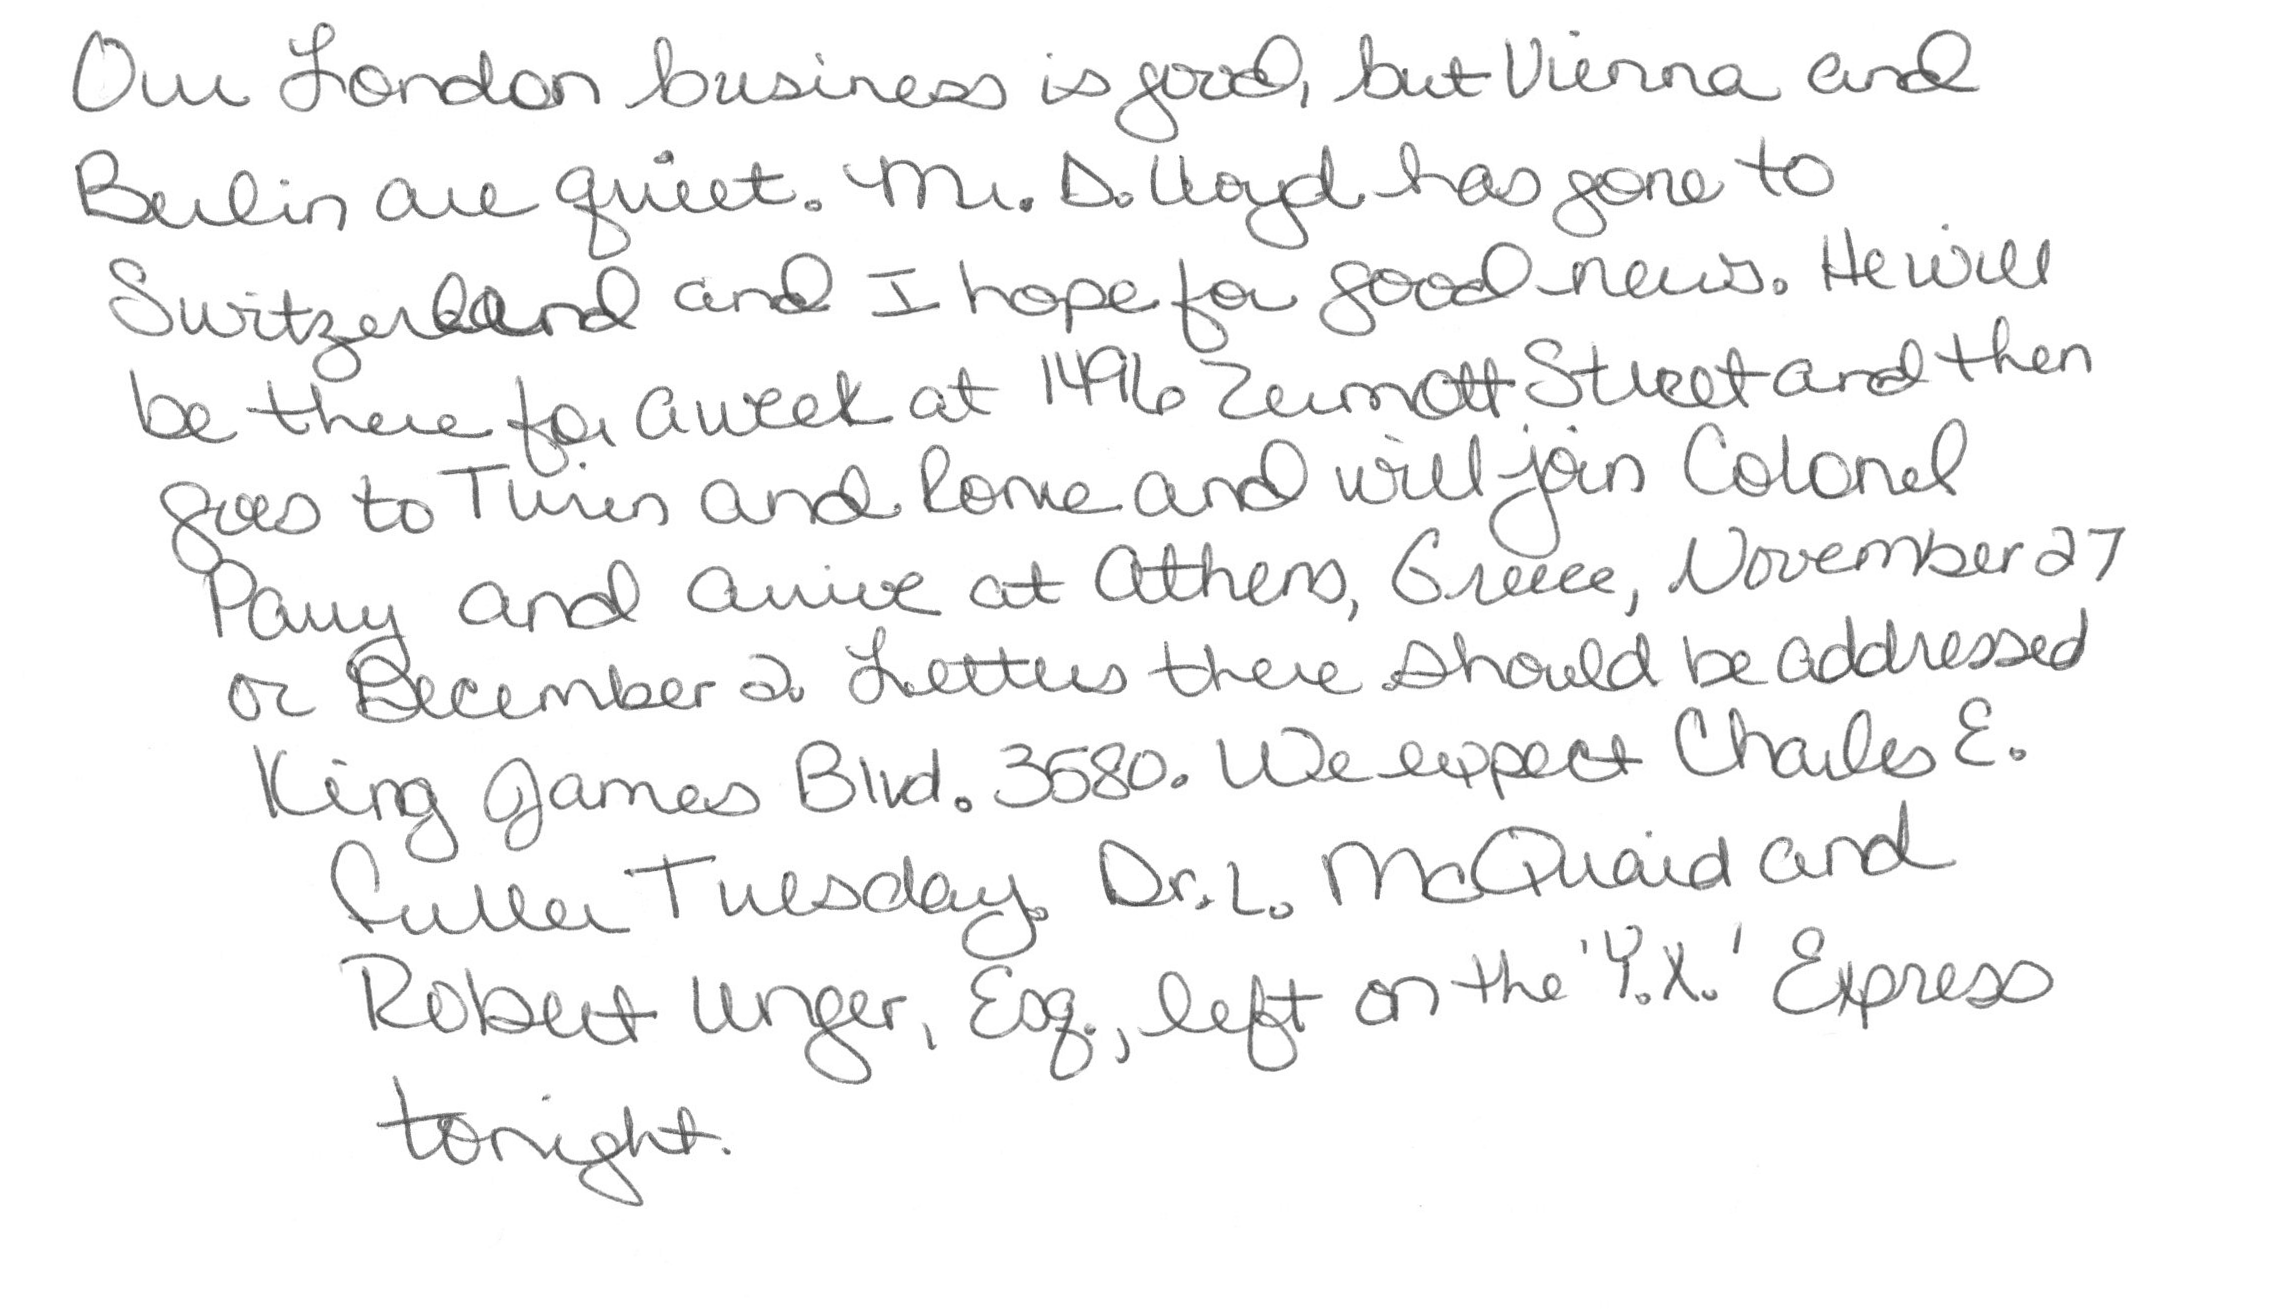 Our London business is good, but Vienna and
Berlin are quiet. Mr. D. Lloyd has gone to
Switzerland and I hope for good news. He will
be there for a week at 1496 Zermott Street and then
goes to Turin and Rome and will join Colonel
Parry and arrive at Athens, Greece, November 27
or December 2. Letters there should be addressed
King James Blvd. 3580. We expect Charles E.
Fuller Tuesday. Dr. L. McQuaid and
Robert Unger, Esq., left on the 'Y.X.' Express
tonight.